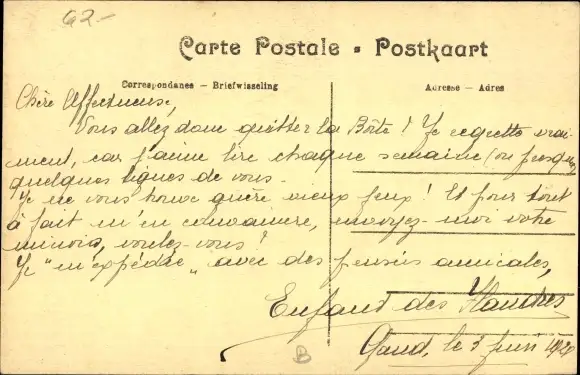 62-
Carte Postale - Postkaart
Correspondance - Briefwisseling
Adresse - Adres
Chère Affectueuse,
Vous allez donc quitter la Boîte ! Je regrette vrai-
ment, car j'aime lire chaque semaine (ou presque)
quelques lignes de vous.
Je ne vous trouve guère vieux jeux ! Et pour tout
à fait m'en convaincre, envoyez-moi votre
minois, voulez-vous ?
Je "m'expédie" avec des pensées amicales,
Enfant des Flandres
Gand, le 3 juin